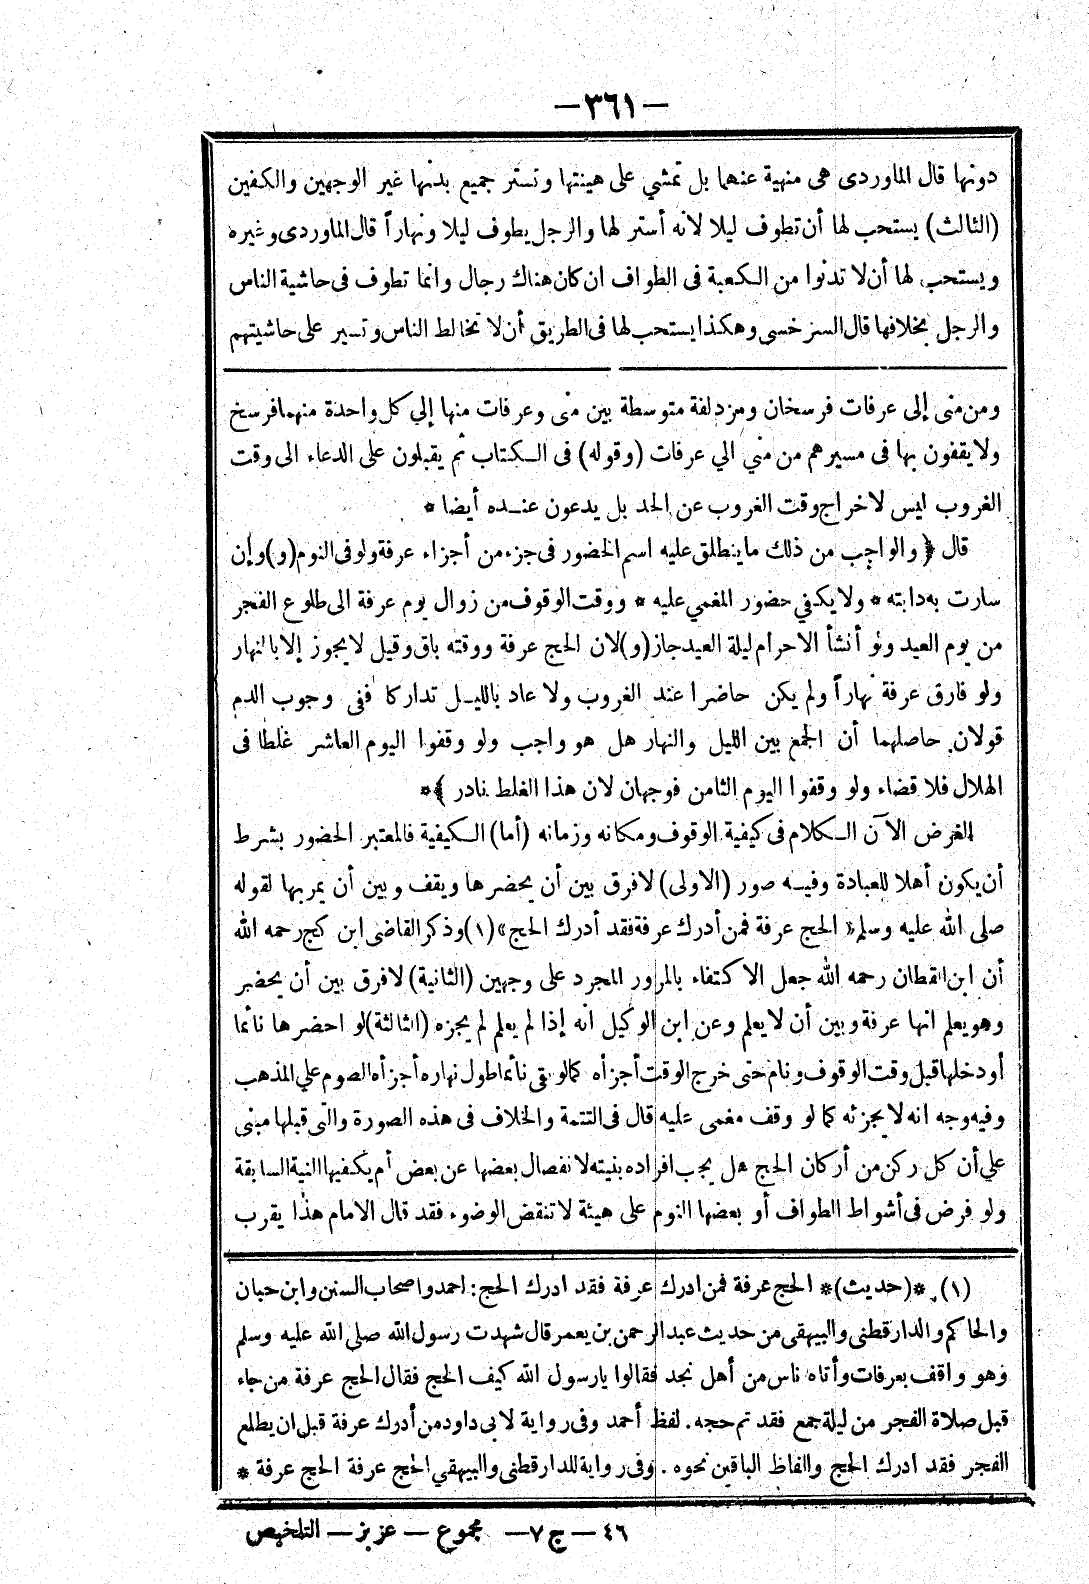 —٣٦١—
دونها قال الماوردى هى منهية عنهما بل تمشي على هينتها وتستر جميع بدنها غير الوجهين والكفين
(الثالث) يستحب لها أن تطوف ليلا لانه أستر لها والرجل يطوف ليلا ونهاراً قال الماوردى وغيره
ويستحب لها أن لا تدنوا من الكعبة فى الطواف ان كان هناك رجال وانما تطوف فى حاشية الناس
والرجل بخلافها قال السرخسى وهكذا يستحب لها فى الطريق أن لا تخالط الناس وتسير على حاشيتهم
ومن منى إلى عرفات فرسخان ومزدلفة متوسطة بين منى وعرفات منها إلي كل واحدة منهما فرسخ
ولا يقفون بها فى مسيرهم من مني الي عرفات (وقوله) فى الكتاب ثم يقبلون على الدعاء الى وقت
الغروب ليس لاخراج وقت الغروب عن الحد بل يدعون عنده أيضا *
قال ﴿ والواجب من ذلك ما ينطلق عليه اسم الحضور فى جزء من أجزاء عرفة ولو فى النوم (و) وإن
سارت به دابته * ولا يكفي حضور المغمي عليه * ووقت الوقوف من زوال يوم عرفة الى طلوع الفجر
من يوم العيد ولو أنشأ الاحرام ليلة العيد جاز (و) لان الحج عرفة ووقته باق وقيل لا يجوز إلا بالنهار
ولو فارق عرفة نهاراً ولم يكن حاضرا عند الغروب ولا عاد بالليل تداركا ففى وجوب الدم
قولان حاصلهما أن الجمع بين الليل والنهار هل هو واجب ولو وقفوا اليوم العاشر غلطا فى
الهلال فلا قضاء ولو وقفوا اليوم الثامن فوجهان لان هذا الغلط نادر ﴾ *
الغرض الآن الكلام فى كيفية الوقوف ومكانه وزمانه (أما) الكيفية فالمعتبر الحضور بشرط
أن يكون أهلا للعبادة وفيه صور (الاولى) لا فرق بين أن يحضرها ويقف وبين أن يمر بها لقوله
صلى الله عليه وسلم « الحج عرفة فمن أدرك عرفة فقد أدرك الحج » (١) وذكر القاضى ابن كج رحمه الله
أن ابن القطان رحمه الله جعل الاكتفاء بالمرور المجرد على وجهين (الثانية) لا فرق بين أن يحضر
وهو يعلم انها عرفة وبين أن لا يعلم وعن ابن الوكيل انه إذا لم يعلم لم يجزه (الثالثة) لو احضرها نائما
أو دخلها قبل وقت الوقوف ونام حتى خرج الوقت أجزأه كما لو بقى نائما طول نهاره أجزأه الصوم علي المذهب
وفيه وجه انه لا يجزئه كما لو وقف مغمى عليه قال فى التتمة والخلاف فى هذه الصورة والتى قبلها مبنى
علي أن كل ركن من أركان الحج هل يجب افراده بنيته لانفصال بعضها عن بعض أم يكفيها النية السابقة
ولو فرض فى أشواط الطواف أو بعضها النوم على هيئة لا تنقض الوضوء فقد قال الامام هذا يقرب
(١) *(حديث)* الحج عرفة فمن ادرك عرفة فقد ادرك الحج: احمد واصحاب السنن وابن حبان
والحاكم والدارقطنى والبيهقى من حديث عبد الرحمن بن يعمر قال شهدت رسول الله صلى الله عليه وسلم
وهو واقف بعرفات وأتاه ناس من أهل نجد فقالوا يارسول الله كيف الحج فقال الحج عرفة من جاء
قبل صلاة الفجر من ليلة جمع فقد تم حجه. لفظ أحمد وفى رواية لابى داود من أدرك عرفة قبل ان يطلع
الفجر فقد ادرك الحج والفاظ الباقين نحوه. وفى رواية للدارقطنى والبيهقي الحج عرفة الحج عرفة *
٤٦ — ج ٧ — مجموع — عزيز — التلخيص